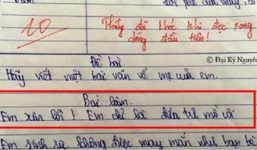 10
Thầy đã khóc khi đọc xong
dòng đầu tiên!
© Đại Kỷ Nguyên
Đề bài
Hãy viết một bài văn về mẹ của em.
Bài làm.
Em xin lỗi! Em chỉ là đứa trẻ mồ côi
Em sinh ra không được may mắn như bạn bè